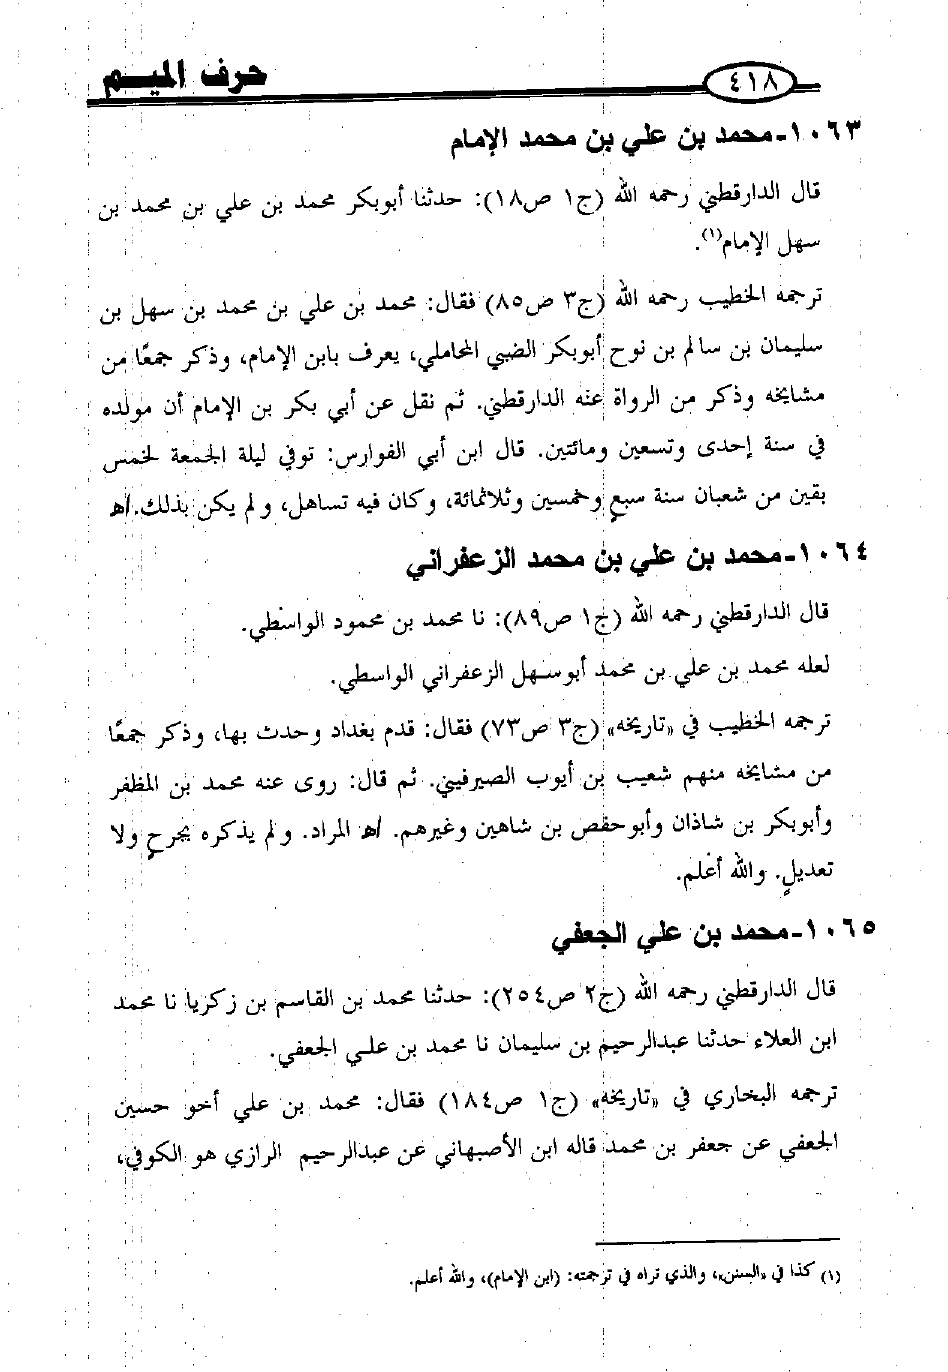 ٤١٨
حرف الميم
١٠٦٣-محمد بن علي بن محمد الإمام
قال الدارقطني رحمه الله (ج١ ص١٨): حدثنا أبوبكر محمد بن علي بن محمد بن
سهل الإمام(١).
ترجمه الخطيب رحمه الله (ج٣ ص٨٥) فقال: محمد بن علي بن محمد بن سهل بن
سليمان بن سالم بن نوح أبوبكر الضبي المحاملي، يعرف بابن الإمام، وذكر جمعًا من
مشايخه وذكر من الرواة عنه الدارقطني. ثم نقل عن أبي بكر بن الإمام أن مولده
في سنة إحدى وتسعين ومائتين. قال ابن أبي الفوارس: توفي ليلة الجمعة لخمس
بقين من شعبان سنة سبعٍ وخمسين وثلاثمائة، وكان فيه تساهل، ولم يكن بذلك. اهـ
١٠٦٤-محمد بن علي بن محمد الزعفراني
قال الدارقطني رحمه الله (ج١ ص٨٩): نا محمد بن محمود الواسطي.
لعله محمد بن علي بن محمد أبوسهل الزعفراني الواسطي.
ترجمه الخطيب في «تاريخه» (ج٣ ص٧٣) فقال: قدم بغداد وحدث بها، وذكر جمعًا
من مشايخه منهم شعيب بن أيوب الصيرفيني. ثم قال: روى عنه محمد بن المظفر
وأبوبكر بن شاذان وأبوحفص بن شاهين وغيرهم. اهـ المراد. ولم يذكره بجرحٍ ولا
تعديلٍ. والله أعلم.
١٠٦٥-محمد بن علي الجعفي
قال الدارقطني رحمه الله (ج٢ ص٢٥٤): حدثنا محمد بن القاسم بن زكريا نا محمد
ابن العلاء حدثنا عبدالرحيم بن سليمان نا محمد بن علي الجعفي.
ترجمه البخاري في «تاريخه» (ج١ ص١٨٤) فقال: محمد بن علي أخو حسين
الجعفي عن جعفر بن محمد قاله ابن الأصبهاني عن عبدالرحيم الرازي هو الكوفي،
(١) كذا في «السنن»، والذي تراه في ترجمته: (ابن الإمام)، والله أعلم.